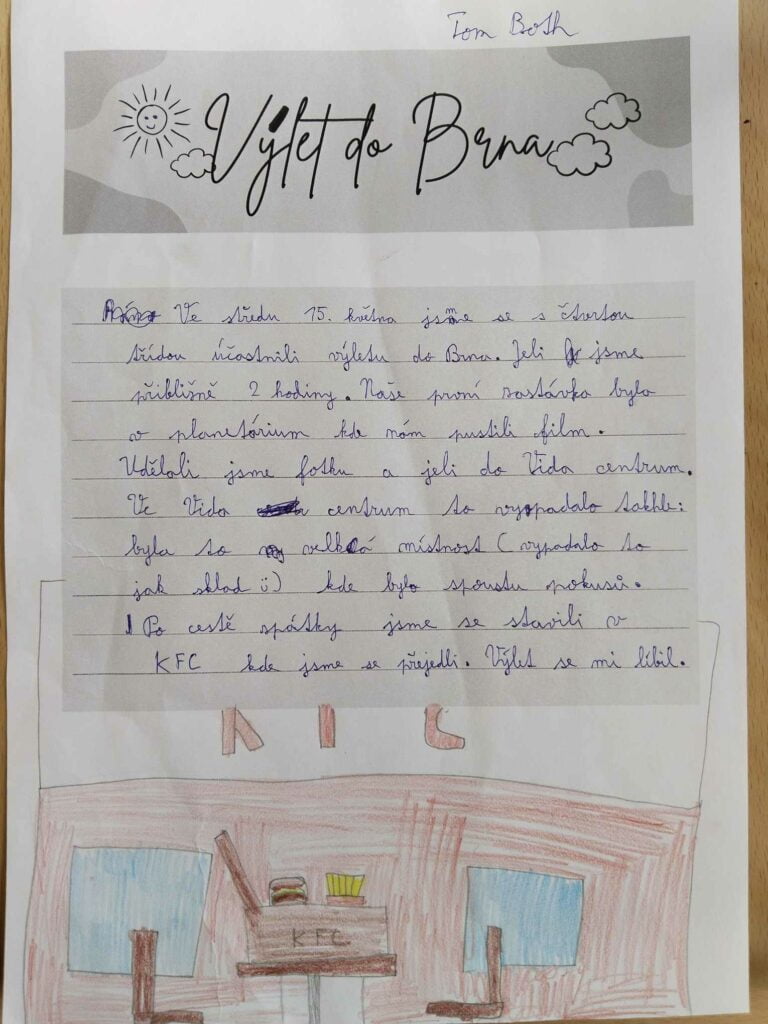 Tom Both
Výlet do Brna
Ve středu 15. května jsme se s čtvrtou
třídou účastnili výletu do Brna. Jeli jsme
přibližně 2 hodiny. Naše první zastávka byla
v planetárium kde nám pustili film.
Udělali jsme fotku a jeli do Vida centrum.
Ve Vida centrum to vypadalo takhle:
byla to velká místnost (vypadalo to
jak sklad ü) kde bylo spoustu pokusů.
Po cestě spátky jsme se stavili v
KFC kde jsme se přejedli. Výlet se mi líbil.
KFC
KFC